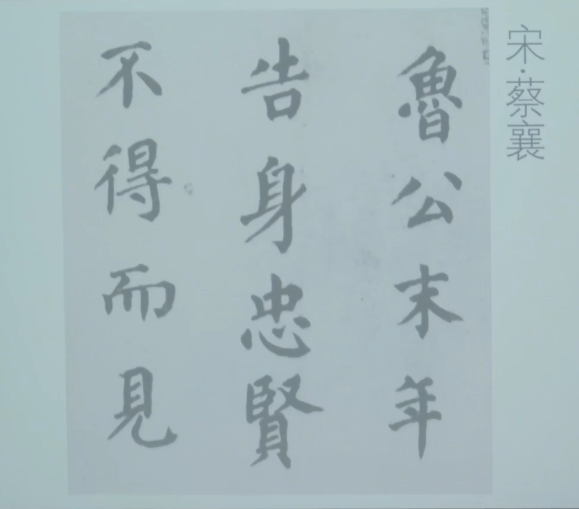 宋·蔡襄
魯公末年
告身忠賢
不得而見